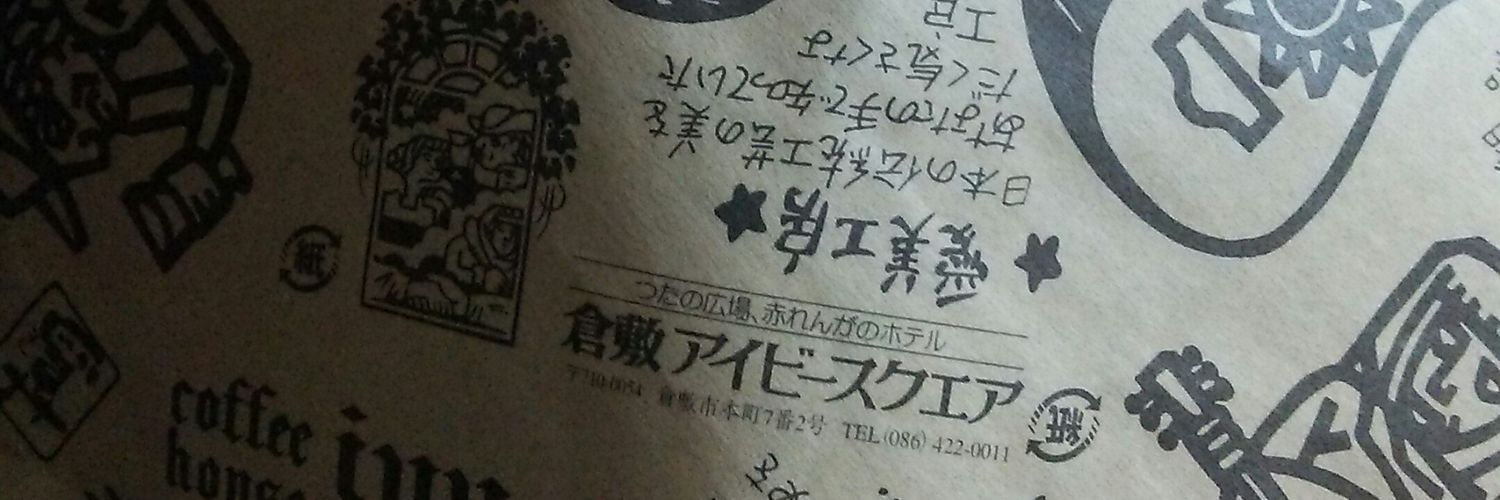 つたの広場、赤れんがのホテル
倉敷アイビースクエア
〒710-0054 倉敷市本町7番2号 TEL(086)422-0011
紙
紙
coffee
house
inn
★愛美工房★
日本の伝統工芸の美を
あなたの手で知っていた
だく気さくな
工房